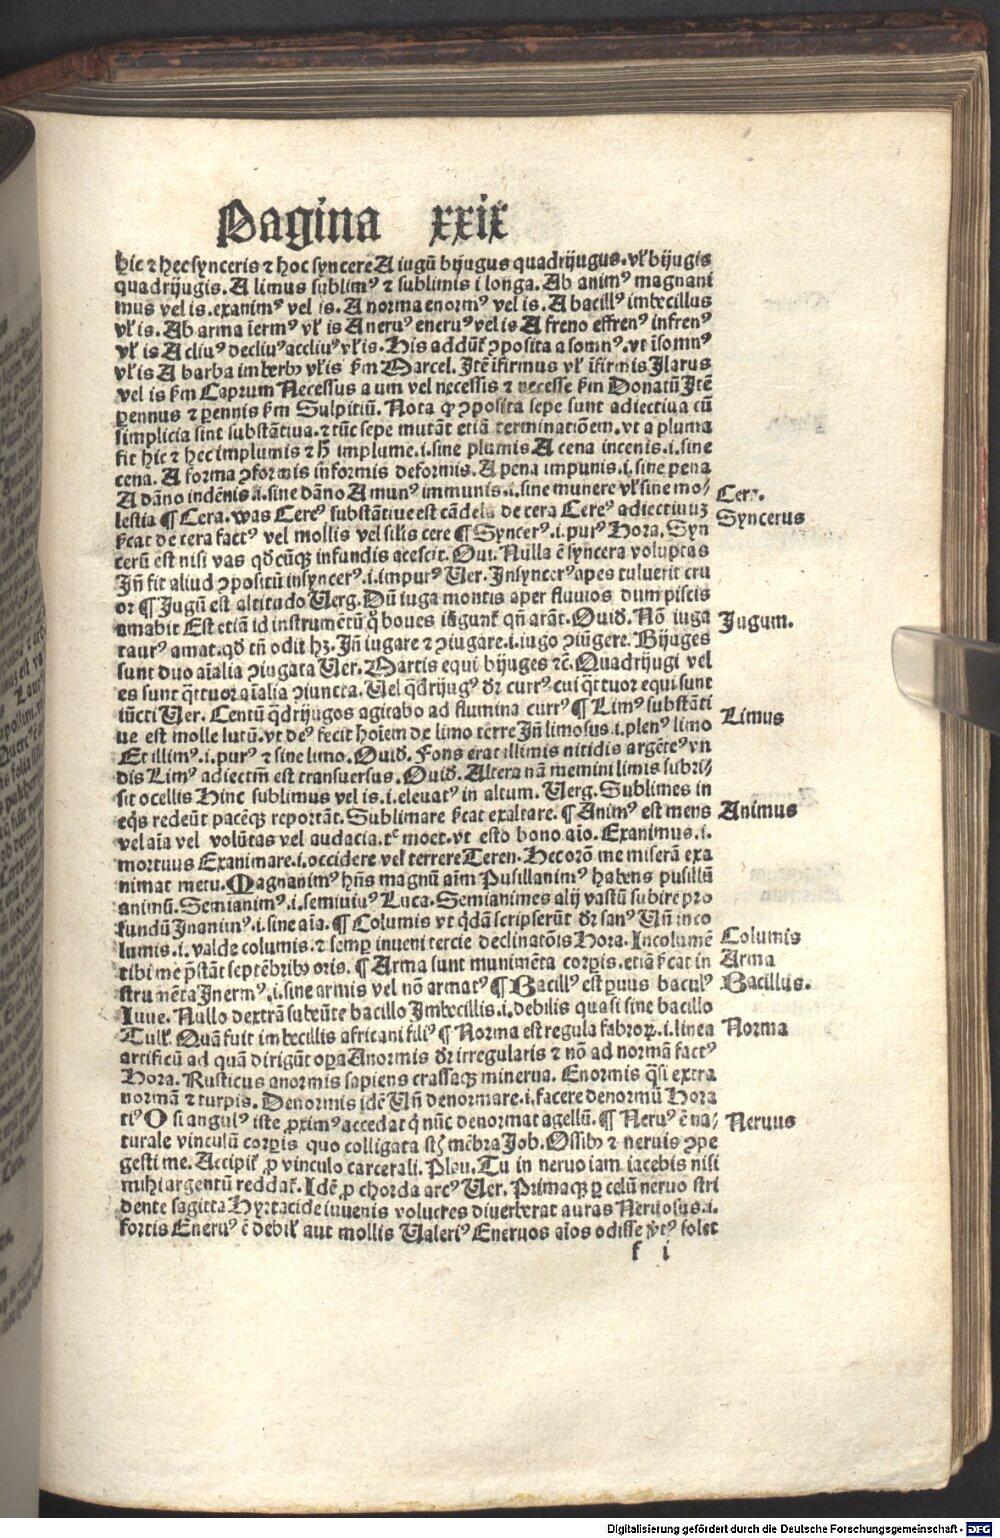 Pagina xxix
hic ⁊ hec synceris ⁊ hoc syncere A iugū bijugus quadrijugus. vł bijugis
quadrijugis. A limus sublimꝰ ⁊ sublimis i longa. Ab animꝰ magnani
mus vel is. exanimꝰ vel is. A norma enormꝰ vel is. A bacillꝰ imbecillus
vł is. Ab arma iermꝰ vł is A neruꝰ eneruꝰ vel is A freno effrenꝰ infrenꝰ
vł is A cliuꝰ decliuꝰ accliuꝰ vł is. His addūt ꝯposita a somnꝰ. vt īsomnꝰ
vł is A barba imberbꝰ vł is ẜm Marcel. Itē īfirmus vł īfirmis Ilarus
vel is ẜm Caprum Necessus a um vel necessis ⁊ necesse ẜm Donatū Itē
ꝑennus ⁊ ꝑennis ẜm Sulpitiū. Nota ꝙ ꝯposita sepe sunt adiectiua cū
simplicia sint substātiua. ⁊ tūc sepe mutāt etiā terminatiōem. vt a pluma
fit hic ⁊ hec implumis ⁊ h̄ implume. i. sine plumis A cena incenis. i. sine
cena. A forma ꝯformis informis deformis. A pena impunis. i. sine pena
A dāno indēnis .i. sine dāno A munꝰ immunis. i. sine munere vł sine mo⸗
lestia ¶ Cera. was Cereꝰ substātiue est cādela de cera Cereꝰ adiectiuuꝫ
ẜcat de cera factꝰ vel mollis vel silis cere ¶ Syncerꝰ. i. purꝰ Hora. Syn
cerū est nisi vas qd̄cūqꝫ infundis acescit. Oui. Nulla ē syncera voluptas
Iñ fit aliud ꝯpositū insyncerꝰ. i. impurꝰ Uer. Insyncerꝰ apes tulerit cru
or ¶ Iugū est altitudo Uerg. Dū iuga montis aper fluuios dum piscis
amabit Est etiā id instrumētū quo boues iūgunt qñ arāt. Ouid. Nō iuga
taurꝰ amat. qd̄ tñ odit hꝫ. Iñ iugare ⁊ ꝯiugare. i. iugo ꝯiūgere. Bijuges
sunt duo aīalia ꝯiugata Uer. Martis equi bijuges ⁊c̄. Quadrijugi vel
es sunt q̄ttuor aīalia ꝯiuncta. Uel q̄drijugꝰ dr̄ currꝰ cui q̄ttuor equi sunt
iūcti Uer. Centū q̄drijugos agitabo ad flumina currꝰ ¶ Limꝰ substāti
ue est molle lutū. vt deꝰ fecit hoīem de limo terre Iñ limosus. i. plenꝰ limo
Et illimꝰ. i. purꝰ ⁊ sine limo. Ouid. Fons erat illimis nitidis argēteꝰ vn
dis Limꝰ adiectiū est transuersus. Ouid. Altera nā memini limis subri⸗
sit ocellis Hinc sublimus vel is. i. eleuatꝰ in altum. Uerg. Sublimes in
eq̄s redeūt pacēqꝫ reportāt. Sublimare ẜcat exaltare. ¶ Animꝰ est mens
vel aīa vel volūtas vel audacia. ⁊c moet. vt esto bono aīo. Exanimus. i.
mortuus Exanimare. i. occidere vel terrere Teren. Hec orō me miserā exa
nimat metu. Magnanimꝰ hñs magnū aīm Pusillanimꝰ habens pusillū
animū. Semianimꝰ. i. semiuiuꝰ Luca. Semianimes alij vastū subire pro
fundū Inanimꝰ. i. sine aīa. ¶ Columis vt q̄dā scripserūt dr̄ sanꝰ Uñ inco
lumis. i. valde columis. ⁊ semꝑ inueni tercie declinatōis Hora. Incolumē
tibi me p̄stāt septēbribꝰ oris. ¶ Arma sunt munimēta corꝑis. etiā ẜcat in
strumēta Inermꝰ. i. sine armis vel nō armatꝰ ¶ Bacillꝰ est ꝑuus baculꝰ
Iuue. Nullo dextrā subeūte bacillo Imbecillis. i. debilis quasi sine bacillo
Tull. Quā fuit imbecillis africani filiꝰ ¶ Norma est regula fabroꝝ. i. linea
artificū ad quā dirigūt oꝑa Anormis dr̄ irregularis ⁊ nō ad normā factꝰ
Hora. Rusticus anormis sapiens crassaqꝫ minerua. Enormis q̄si extra
normā ⁊ turpis. Denormis idē Uñ denormare. i. facere denormū Hora
tiꝰ O si angulꝰ iste ꝓximꝰ accedat q̄ nūc denormat agellū. ¶ Neruꝰ ē na⸗
turale vinculū corꝑis quo colligata st̄ mēbra Job. Ossibꝰ ⁊ neruis ꝯpe
gesti me. Accipit̄ ꝓ vinculo carcerali. Plau. Tu in neruo iam iacebis nisi
mihi argentū reddat̄. Idē ꝓ chorda arcꝰ Uer. Primaqꝫ ꝑ celū neruo stri
dente sagitta Hyrtacide iuuenis volucres diuerberat auras Neruosus. i.
fortis Eneruꝰ ē debił aut mollis Ualeriꝰ Eneruos aīos odisse v̄tꝰ solet
f i
Cera.
Syncerus
Jugum.
Limus
Animus
Columis
Arma
Bacillus.
Norma
Neruus
Digitalisierung gefördert durch die Deutsche Forschungsgemeinschaft - DFG